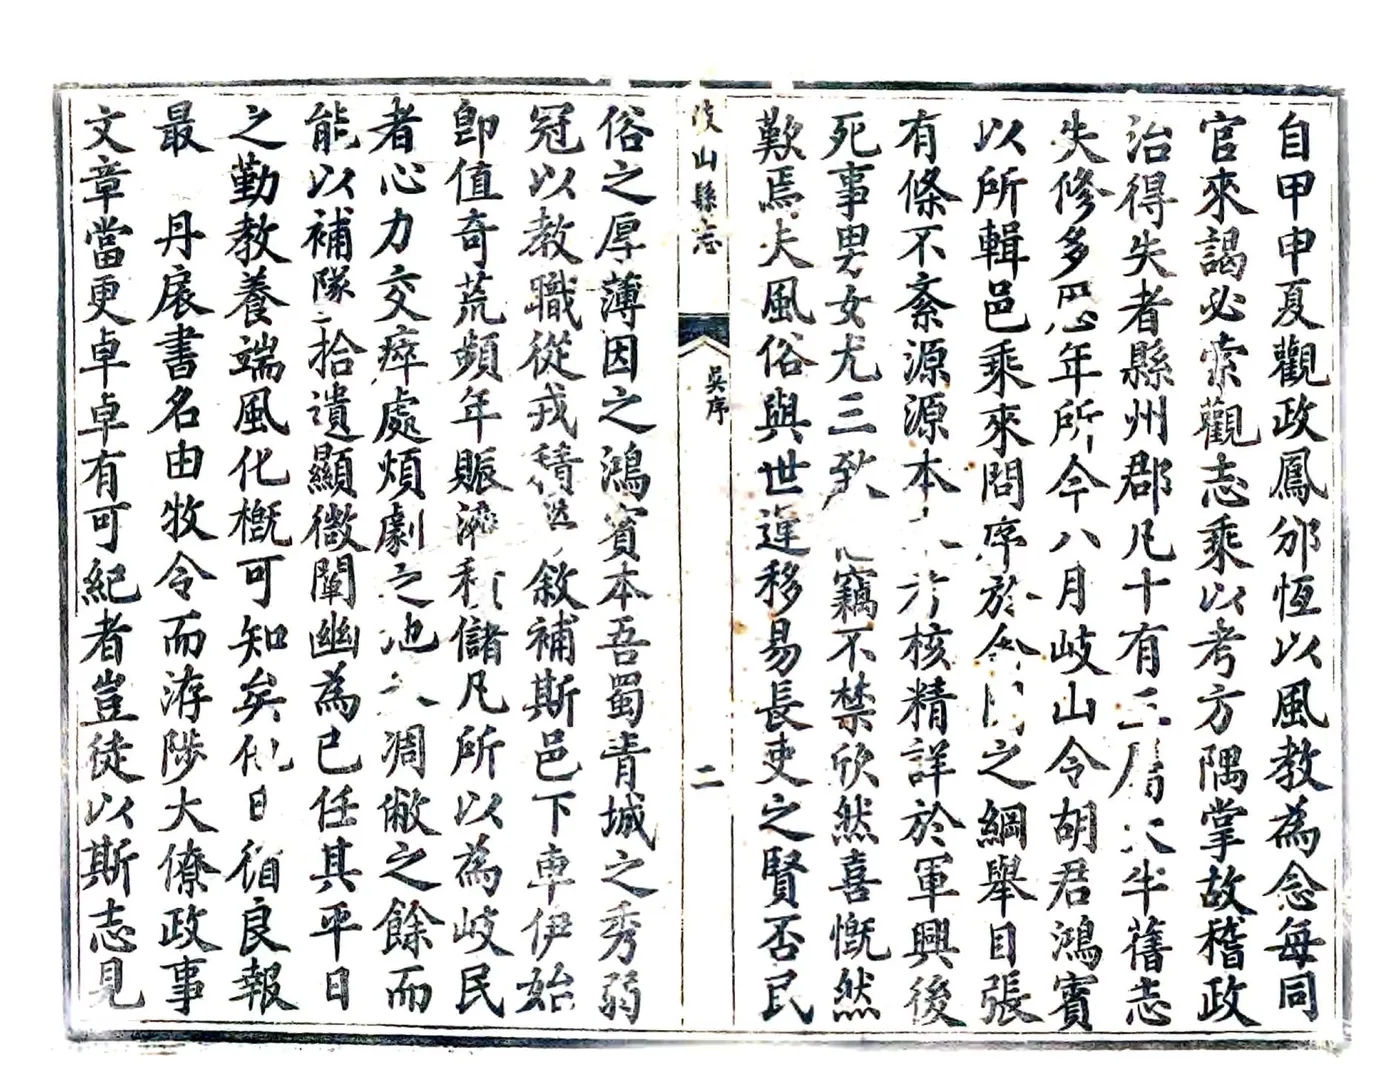 自甲申夏觀政鳳邠恆以風教為念每同
官來謁必索觀志乘以考方隅掌故稽政
治得失者縣州郡凡十有三屬大半舊志
失修多歷年所今八月岐山令胡君鴻賓
以所輯邑乘來問序於余閱之綱舉目張
有條不紊源源本本考核精詳於軍興後
死事男女尤三致竊不禁欣然喜慨然
歎焉夫風俗與世運移易長吏之賢否民
岐山縣志
吳序
二
俗之厚薄因之鴻賓本吾蜀青城之秀弱
冠以教職從戎積敘補斯邑下車伊始
卽值奇荒頻年賑濟積儲凡所以為岐民
者心力交瘁處煩劇之地凋敝之餘而
能以補隊拾遺顯微闡幽為已任其平日
之勤教養端風化槪可知矣他日循良報
最 丹扆書名由牧令而洊陟大僚政事
文章當更卓卓有可紀者豈徒以斯志見